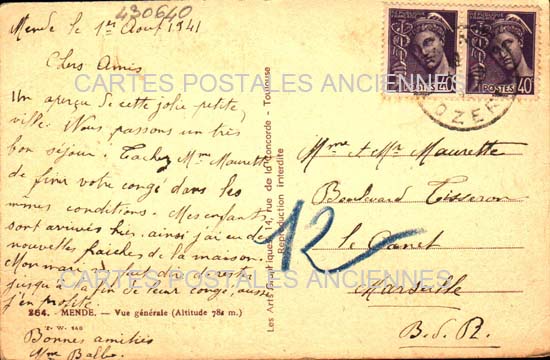 430640
Mende le 1er Aout 1941
Chers Amis
Un aperçu de cette jolie petite
ville. Nous passons un très
bon séjour. Tachez Mme Maurette
de finir votre congé dans les
mmes conditions. Mes enfants
sont arrivés hier. ainsi j'ai eu des
nouvelles fraiches de la maison.
Mon mari
jusqu'à la fin de leur congé, aussi
j'en profite.
264. - MENDE. - Vue générale (Altitude 782 m.)
T. W. 146
Bonnes amitiés
Mme Balbo
Les Arts 14, rue de la Concorde - Toulouse
Reproduction interdite
POSTES 40
POSTES 40
LOZERE
Mme et Mr Maurette
Boulevard Tisseron
le Canet
Marseille
B.d.R.
12
CARTES POSTALES ANCIENNES
CARTES POSTALES ANCIENNES